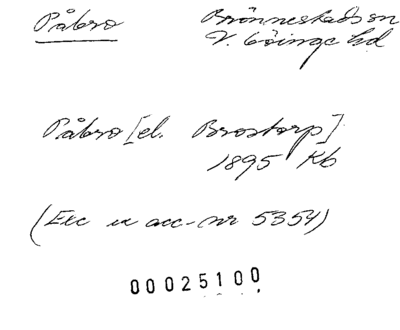 Påbro
Brönnestads sn
V. Göinge hd
Påbro [el. Brostorp]
1895 Kb
(Exc ur acc-nr 5354)
00025100